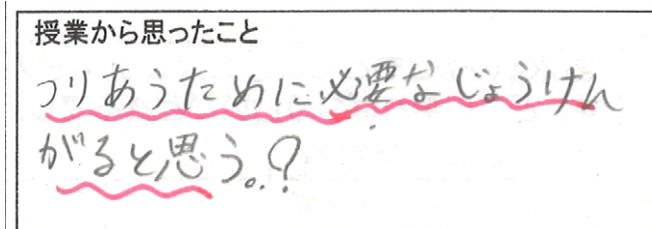 授業から思ったこと
つりあうために必要なじょうけん
がると思う。.?